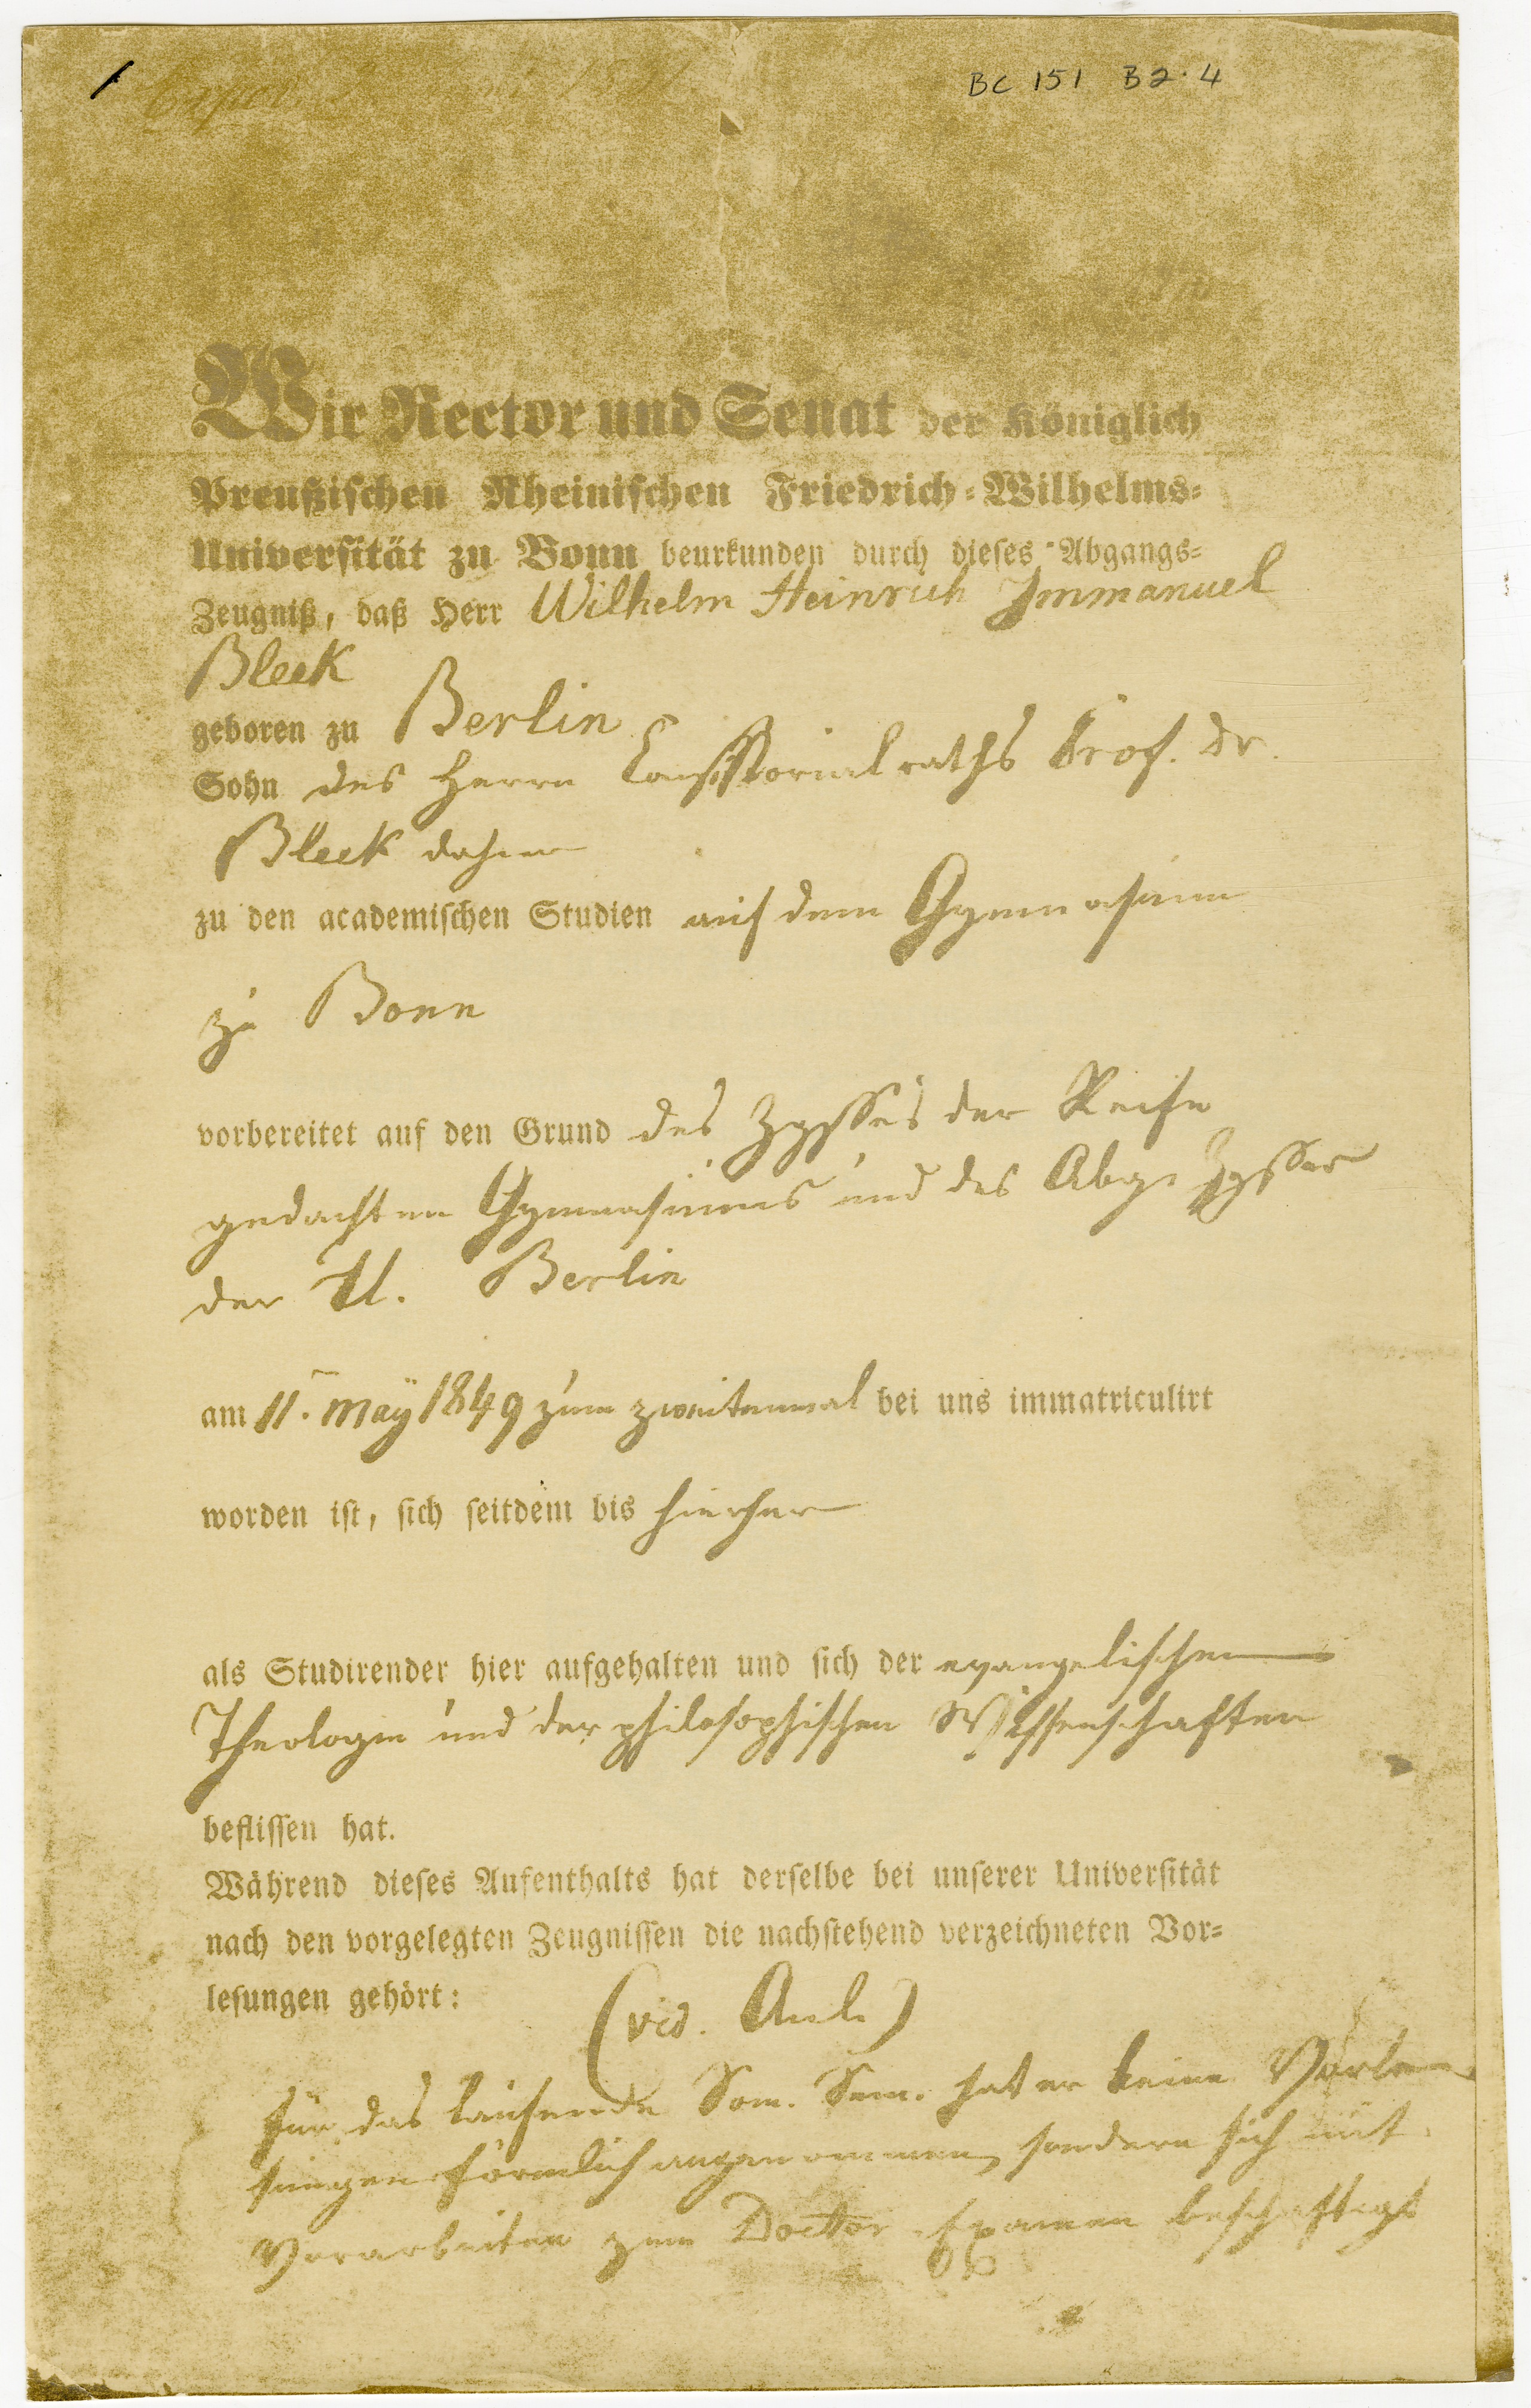 BC 151 B2.4
Wir Rector und Senat der Königlich
Preußischen Rheinischen Friedrich-Wilhelms-
Universität zu Bonn beurkunden durch dieses Abgangs-
Zeugniß, daß Herr Wilhelm Heinrich Immanuel
Bleek
geboren zu Berlin
Sohn des Herrn Consistorialraths Prof. Dr.
Bleek daher
zu den academischen Studien auf dem Gymnasium
zu Bonn
vorbereitet auf den Grund des Zgsses der Reife
gedachten Gymnasiums und des Abg. Zgsses
der U. Berlin
am 11. May 1849 zum zweitenmal bei uns immatriculirt
worden ist, sich seitdem bis hierher
als Studirender hier aufgehalten und sich der evangelischen
Theologie und der philosophischen Wissenschaften
beflissen hat.
Während dieses Aufenthalts hat derselbe bei unserer Universität
nach den vorgelegten Zeugnissen die nachstehend verzeichneten Vor-
lesungen gehört:
(vid. Anl.)
Für das laufende Som. Sem. hat er keine Vorle-
sungen förmlich angenommen, sondern sich mit
Vorarbeiten zum Doctor-Examen beschäftigt